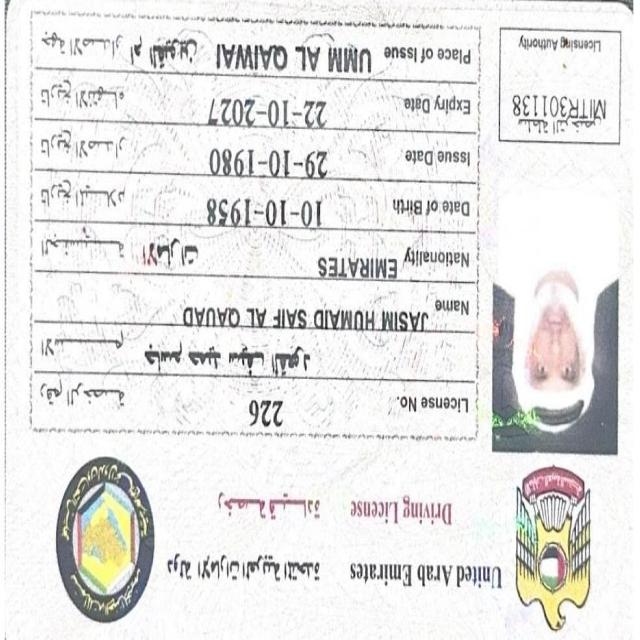 United Arab Emirates دولة الإمارات العربية المتحدة
Driving License رخصة قيادة
License No. 226 رقم الرخصة
الاسم جاسم حميد سيف القود
Name JASIM HUMAID SAIF AL QAUAD
Nationality EMIRATES الامارات الجنسية
Date of Birth 10-10-1958 تاريخ الميلاد
Issue Date 29-10-1980 تاريخ الاصدار
Expiry Date 22-10-2027 تاريخ الانتهاء
Place of Issue UMM AL QAIWAI ام القيوين جهة الاصدار
سلطة الترخيص
MITR301138
Licensing Authority